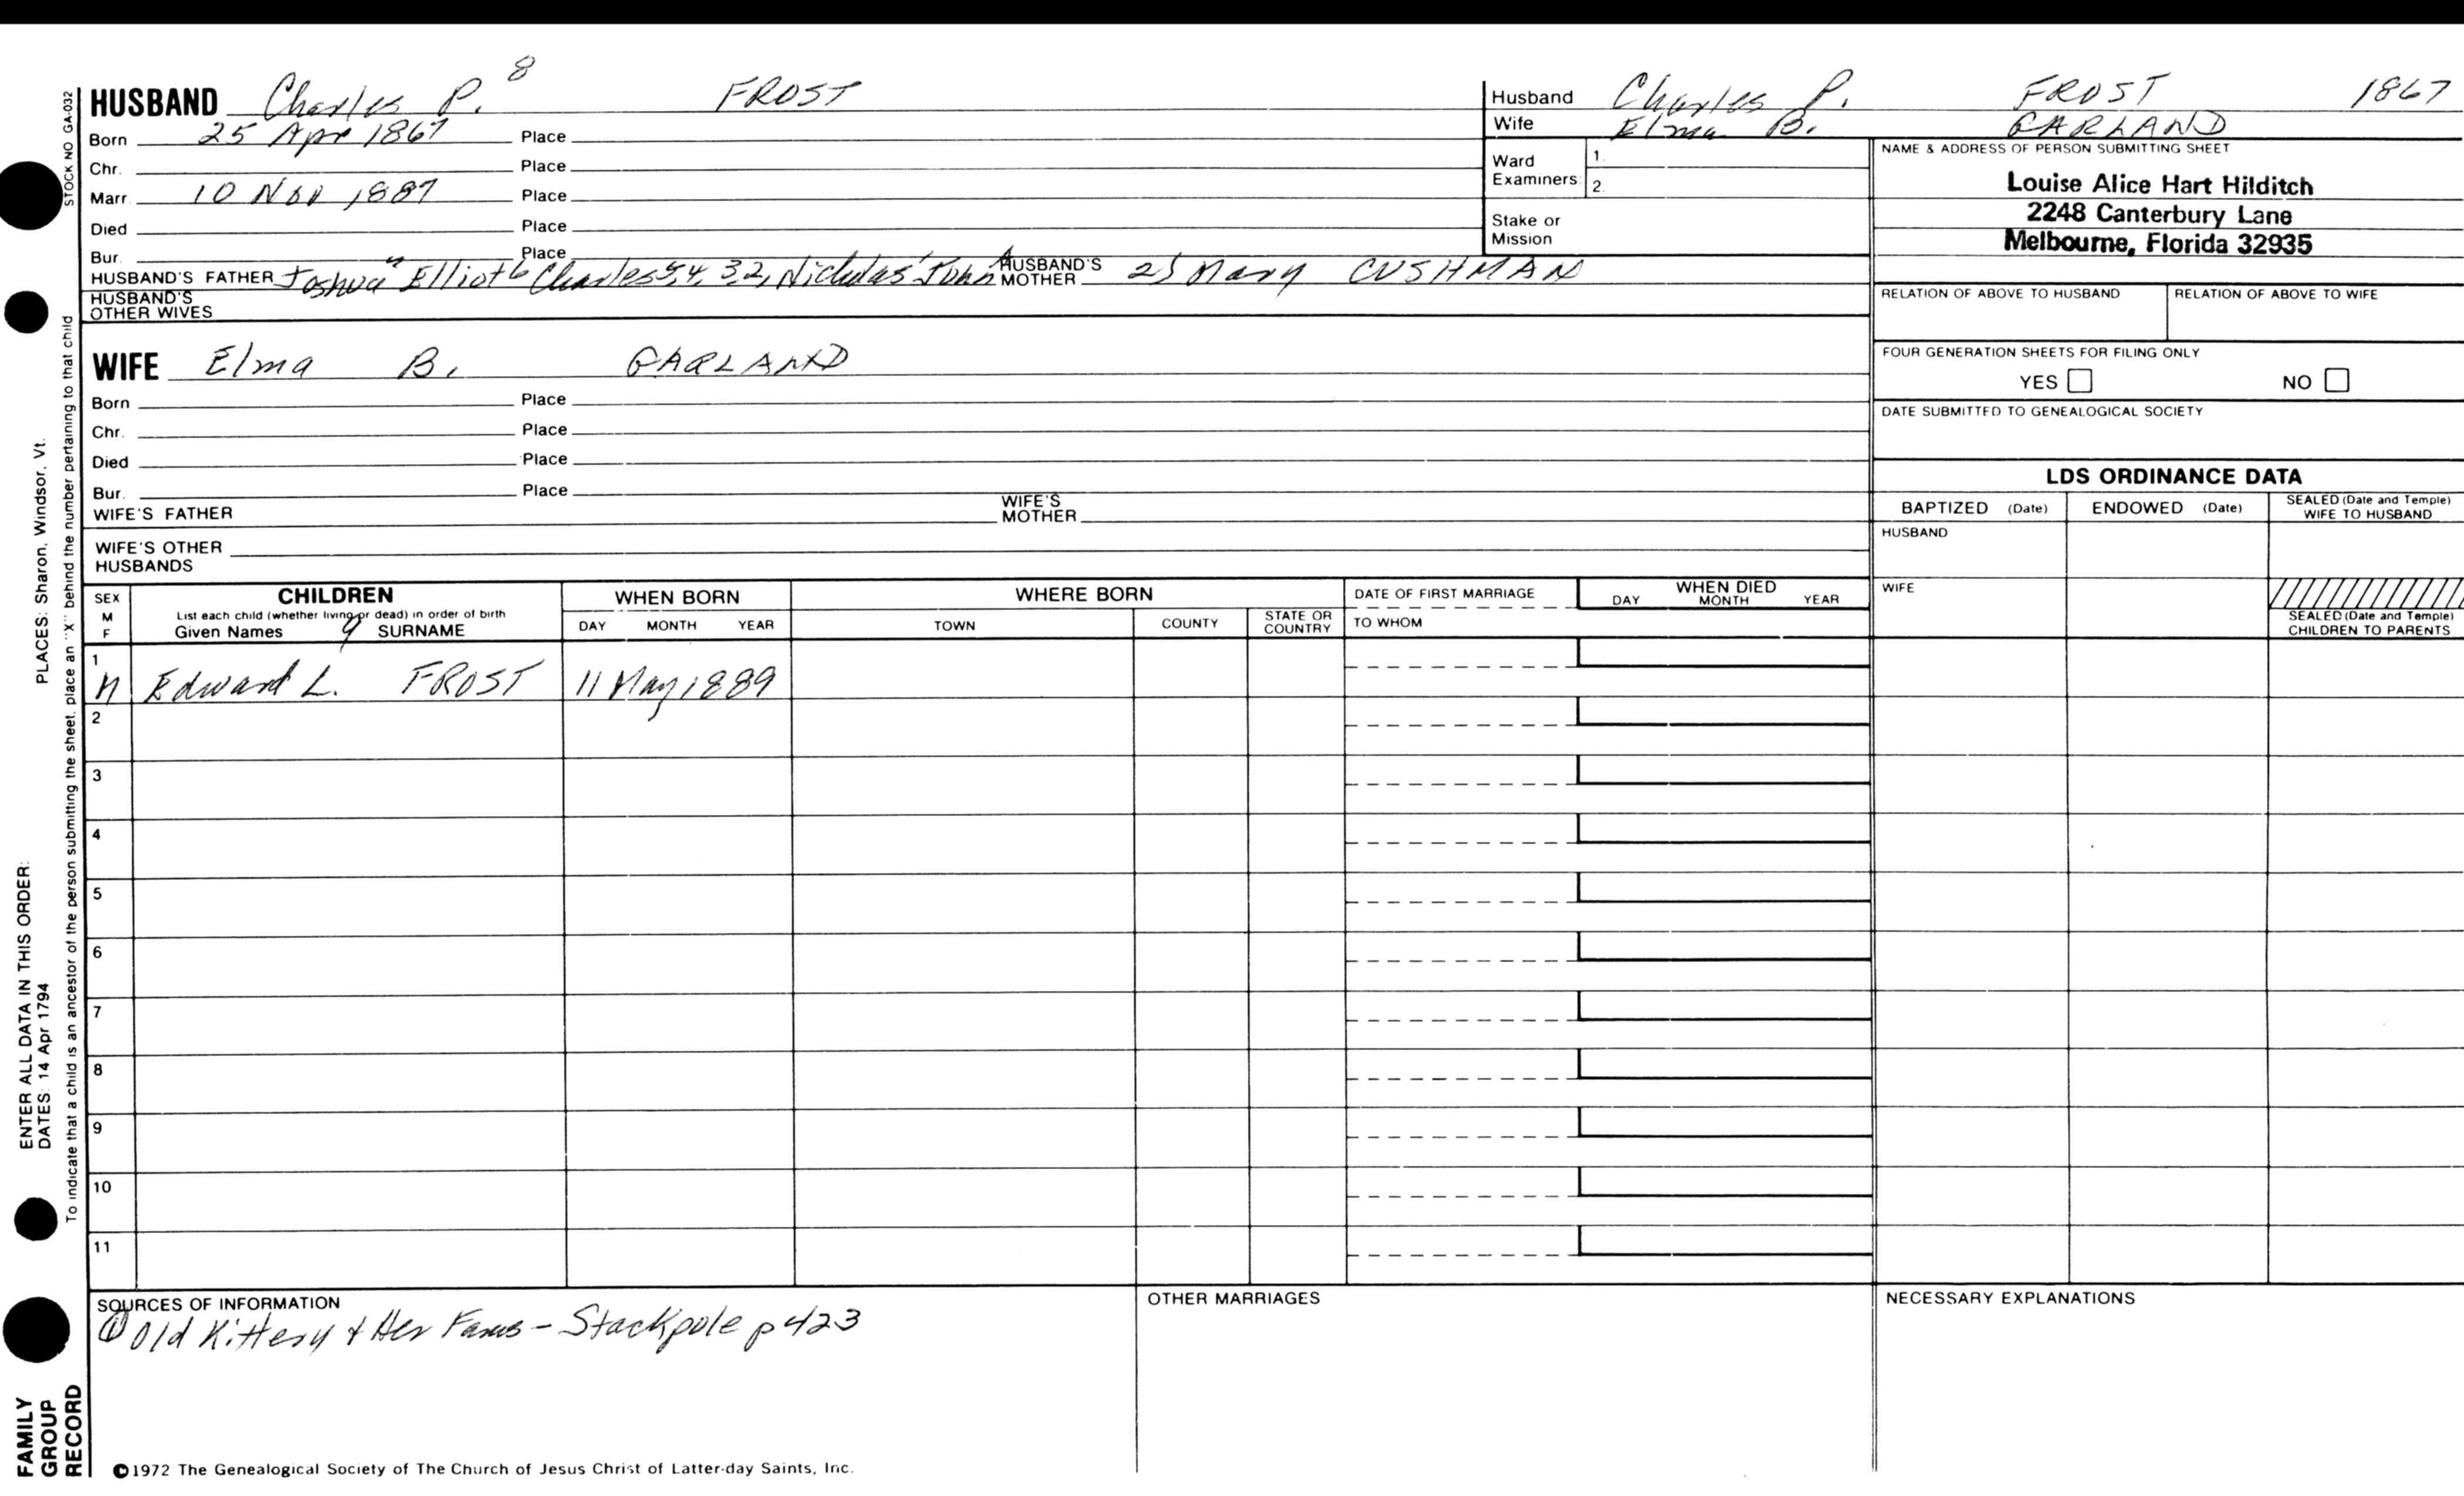 HUSBAND Charles P. 8 FROST
Born 25 Apr 1867 Place
Chr. Place
Marr. 10 Nov 1887 Place
Died Place
Bur. Place
HUSBAND'S FATHER Joshua Elliot 6 Charles 5, 4, 3 2, Nicholas' John HUSBAND'S MOTHER 2) Mary CUSHMAN
HUSBAND'S OTHER WIVES
Husband Charles P. FROST 1867
Wife Elma B. GARLAND
Ward Examiners: 1. 2.
Stake or Mission
NAME & ADDRESS OF PERSON SUBMITTING SHEET
Louise Alice Hart Hilditch
2248 Canterbury Lane
Melbourne, Florida 32935
RELATION OF ABOVE TO HUSBAND RELATION OF ABOVE TO WIFE
FOUR GENERATION SHEETS FOR FILING ONLY
YES NO
DATE SUBMITTED TO GENEALOGICAL SOCIETY
WIFE Elma B. GARLAND
Born Place
Chr. Place
Died Place
Bur. Place
WIFE'S FATHER WIFE'S MOTHER
WIFE'S OTHER HUSBANDS
LDS ORDINANCE DATA
BAPTIZED (Date) ENDOWED (Date) SEALED (Date and Temple) WIFE TO HUSBAND
HUSBAND
WIFE
SEALED (Date and Temple) CHILDREN TO PARENTS
SEX M F
CHILDREN
List each child (whether living or dead) in order of birth
Given Names 9 SURNAME
WHEN BORN
DAY MONTH YEAR
WHERE BORN
TOWN COUNTY STATE OR COUNTRY
DATE OF FIRST MARRIAGE
TO WHOM
WHEN DIED
DAY MONTH YEAR
1
M Edward L. FROST 11 May 1889
2
3
4
5
6
7
8
9
10
11
SOURCES OF INFORMATION
① Old Kittery & Her Fams - Stackpole p 423
OTHER MARRIAGES
NECESSARY EXPLANATIONS
©1972 The Genealogical Society of The Church of Jesus Christ of Latter-day Saints, Inc.
STOCK NO GA-032
To indicate that a child is an ancestor of the person submitting the sheet, place an "X" behind the number pertaining to that child
ENTER ALL DATA IN THIS ORDER:
DATES: 14 Apr 1794 PLACES: Sharon, Windsor, Vt.
FAMILY
GROUP
RECORD